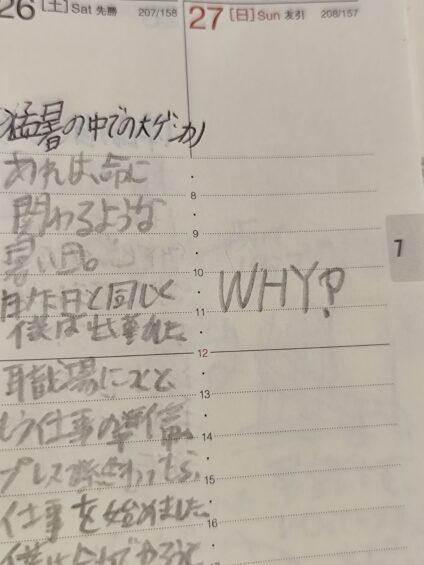 26 [土] Sat 先勝 207/158
27 [日] Sun 友引 208/157
猛暑の中での大ゲンカ
あれは、命に
関わるような
暑い日。
昨日と同じく
僕は出勤した
職場につくと
もう仕事の準備
プレス終わったら、
仕事を始めました
WHY?
8
9
10
11
12
13
14
15
16
7